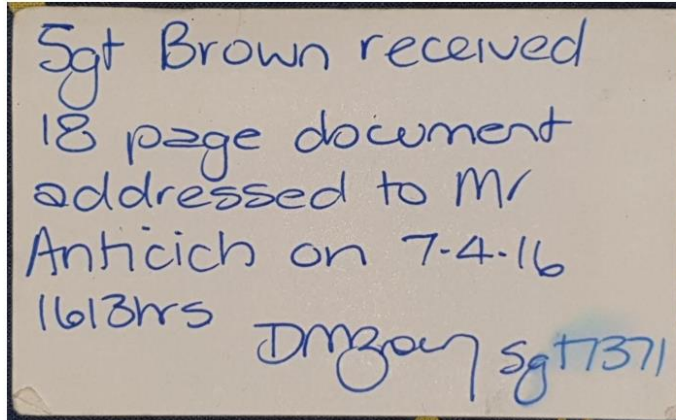 Sgt Brown received
18 page document
addressed to Mr
Anticich on 7-4-16
1613hrs
Sgt 7371